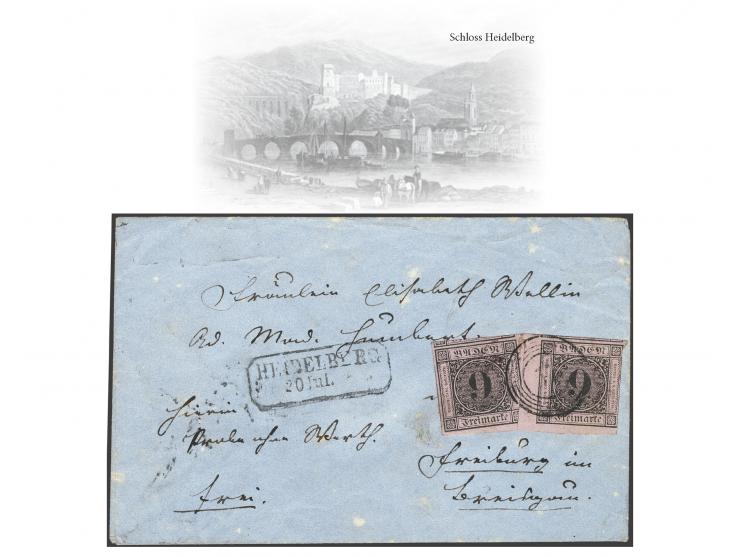 Schloss Heidelberg
Fräulein Elisabeth Wellin
Ad. Mad. Humbert.
HEIDELBERG
20 Jul.
BADEN
9
Freimarke
BADEN
9
Freimarke
hierin
Probe ohne Werth.
frei.
Freiburg im
Breisgau.